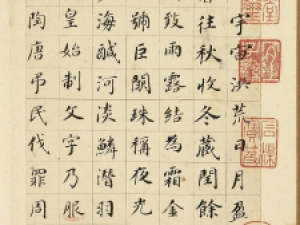 宇宙洪荒日月盈
暑往秋收冬藏閏餘
致雨露結為霜金
號巨闕珠稱夜光
海鹹河淡鱗潛羽
皇始制文字乃服
陶唐吊民伐罪周